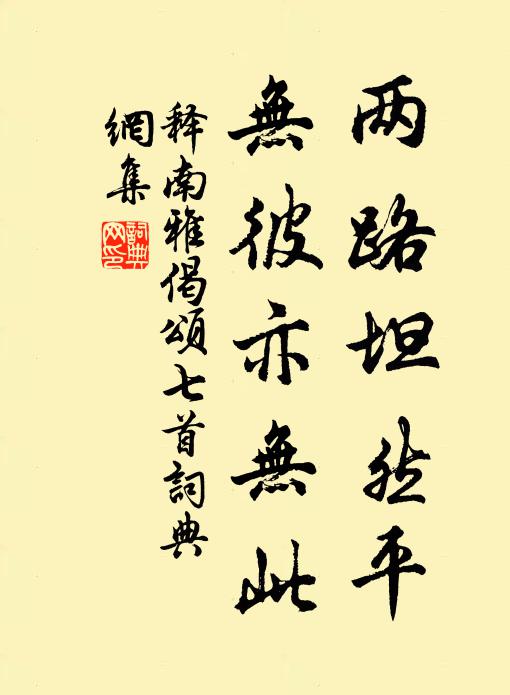 两路坦然平
無彼亦無此
释南雅偈頌七首詞典
網集
詞典
网印